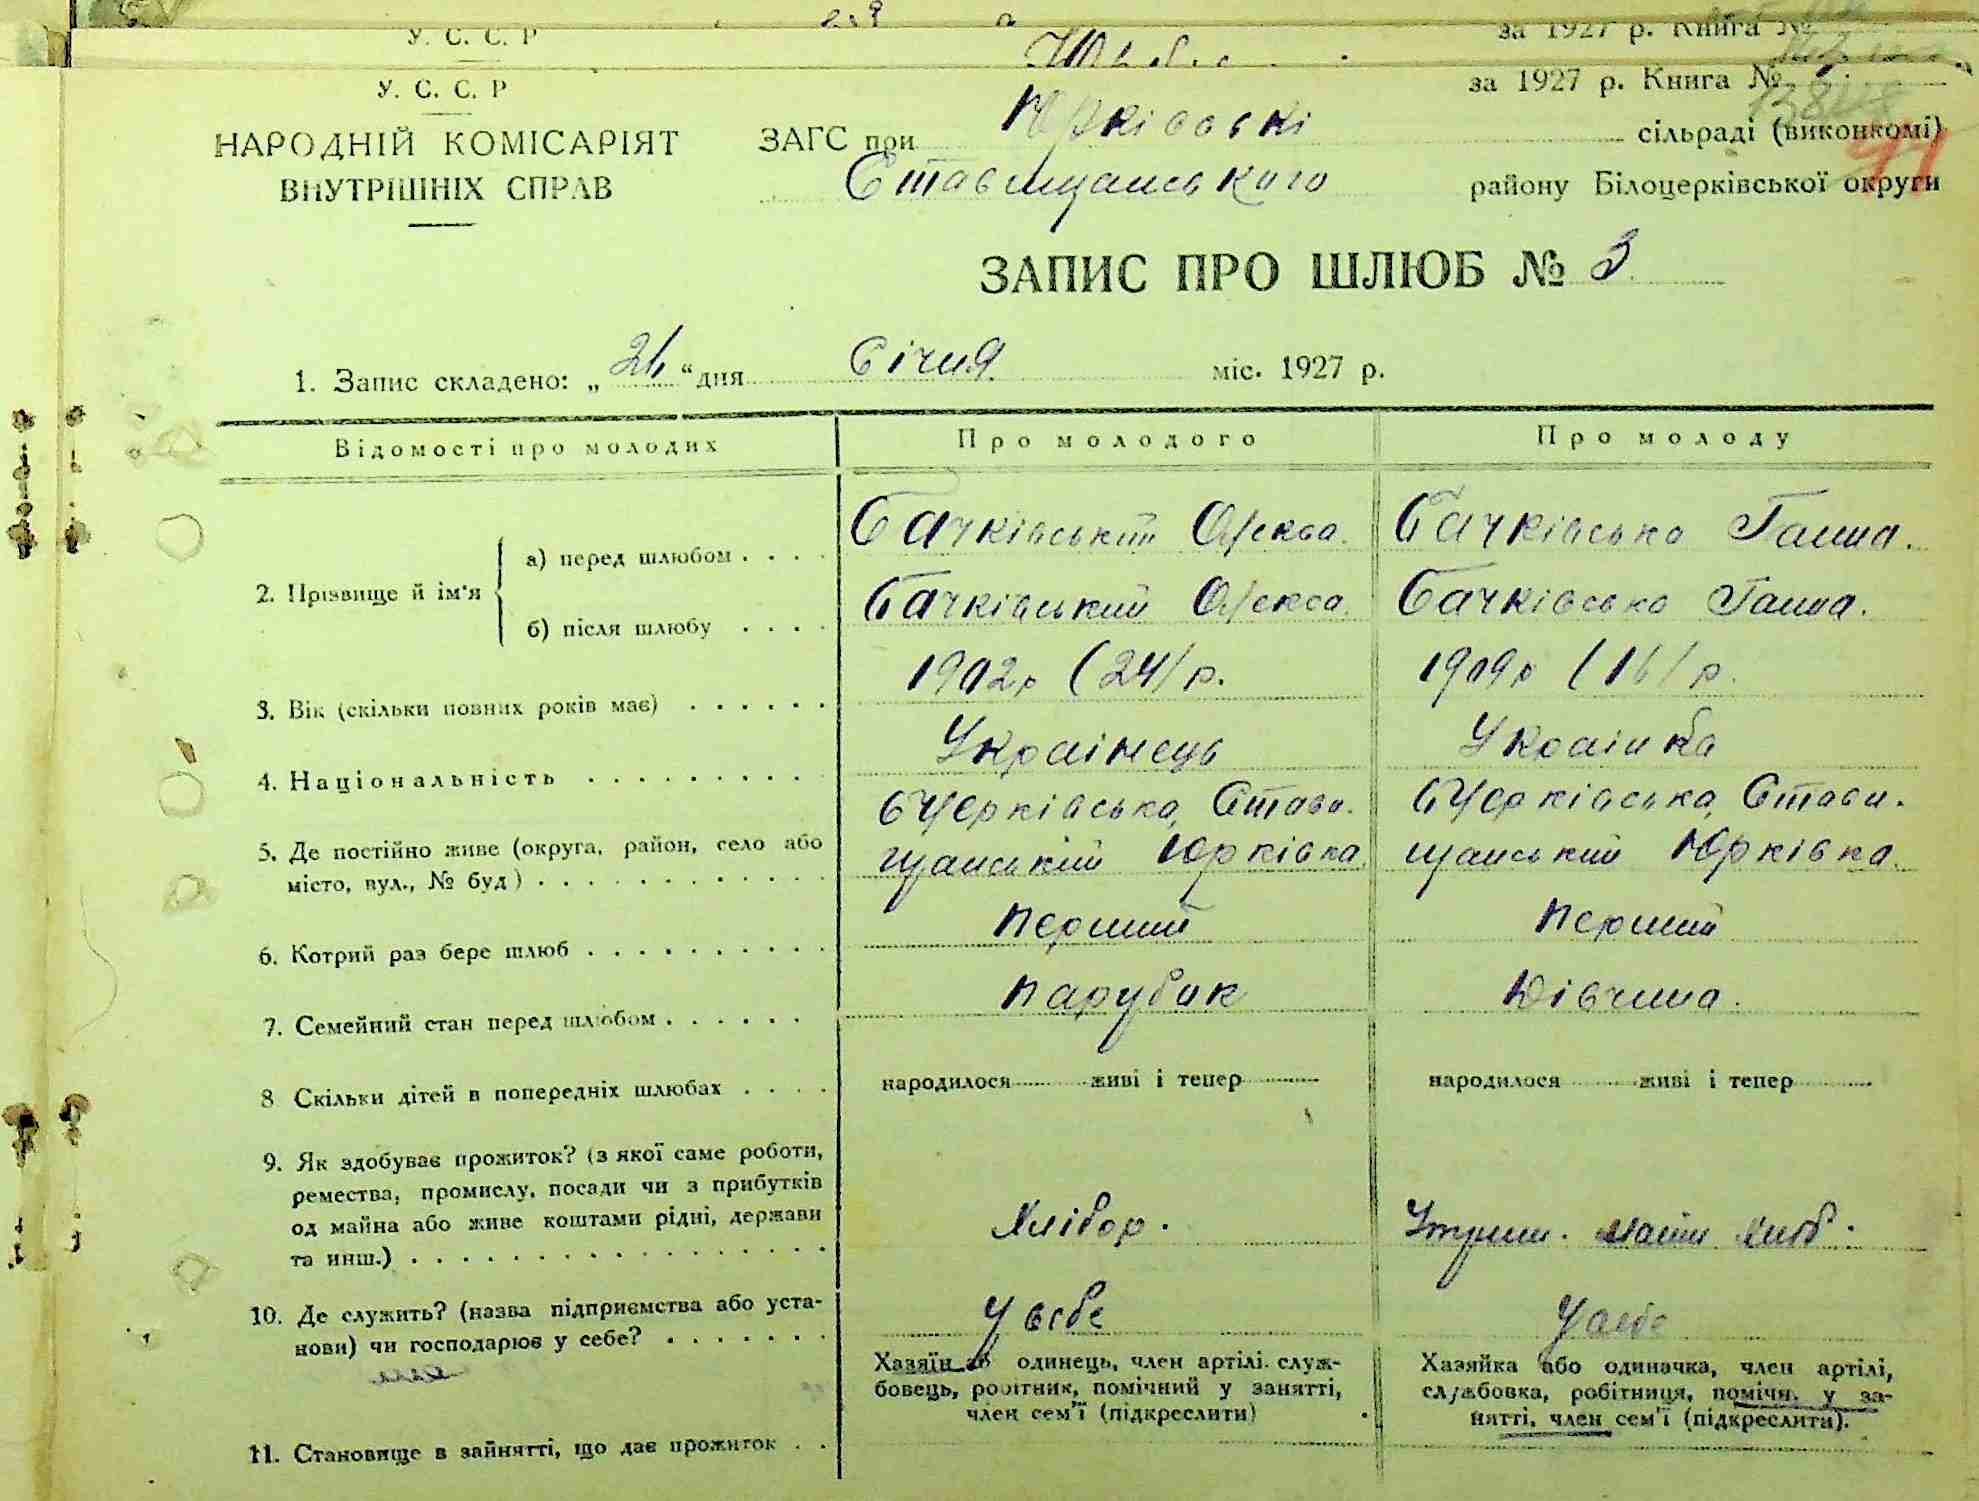 У. С. С. Р
за 1927 р. Книга №
У. С. С. Р
за 1927 р. Книга №
НАРОДНІЙ КОМІСАРІЯТ
ВНУТРІШНІХ СПРАВ
ЗАГС при Юрківські сільраді (виконкомі)
Ставищанського району Білоцерківської округи
ЗАПИС ПРО ШЛЮБ № 3
1. Запис складено: „ “ дня Січня міс. 1927 р.
Відомості про молодих
Про молодого
Про молоду
2. Прізвище й ім'я
а) перед шлюбом . . . .
Бачківський Олекса.
Бачківська Ганна.
б) після шлюбу . . . .
Бачківський Олекса.
Бачківська Ганна.
3. Вік (скільки повних років має) . . . . . .
1902р (24/р.
1909р (16/р.
4. Національність . . . . . . . . .
Українець
Українка
5. Де постійно живе (округа, район, село або
місто, вул., № буд) . . . . . . . . . . . .
БЦерківська, Стави.
щанський Юрківка.
БЦерківська, Стави.
щанський Юрківка.
6. Котрий раз бере шлюб . . . . . . . . . .
Перший
Перший
7. Семейний стан перед шлюбом . . . . . .
Парубок
Дівчина.
8 Скільки дітей в попередніх шлюбах . . . .
народилося живі і тепер
народилося живі і тепер
9. Як здобуває прожиток? (з якої саме роботи,
ремества, промислу, посади чи з прибутків
од майна або живе коштами рідні, держави
та инш.) . . . . . . . . . . . . . . . . .
Хлібор.
10. Де служить? (назва підприємства або уста-
нови) чи господарює у себе? . . . . . . .
У себе
У себе
Хазяїн аб одинець, член артілі. служ-
бовець, робітник, помічний у занятті,
член сем'ї (підкреслити)
Хазяйка або одиначка, член артілі,
службовка, робітниця, помічн. у за-
нятті, член сем'ї (підкреслити).
11. Становище в зайнятті, що дає прожиток . .